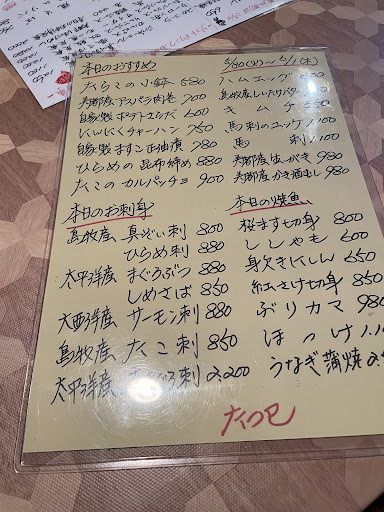 本日のおすすめ
たらこの小鉢 580
美都産アスパラ肉巻 700
自家製ポテトさらだ 600
にんにくチャーハン 750
自家製ますこ正油漬 780
ひらめの昆布締め 880
たこのカルパッチョ 900
本日のお刺身
島牧産 真ぞい刺 800
ひらめ刺 880
太平洋産 まぐろぶつ 880
しめさば 850
大西洋産 サーモン刺 880
島牧産 たこ刺 850
太平洋産 まぐろ刺 2,200
5/30(火)～6/1(木)
ハムエッグ
島牧産しいたけバター
キムチ 550
馬刺のユッケ 1,100
馬刺 1,100
生がき 980
かき酒むし 980
本日の焼魚
桜ます切身 800
ししゃも 600
身欠きにしん 650
紅さけ切身 850
ぶりカマ 980
ほっけ
うなぎ蒲焼
たつ巳